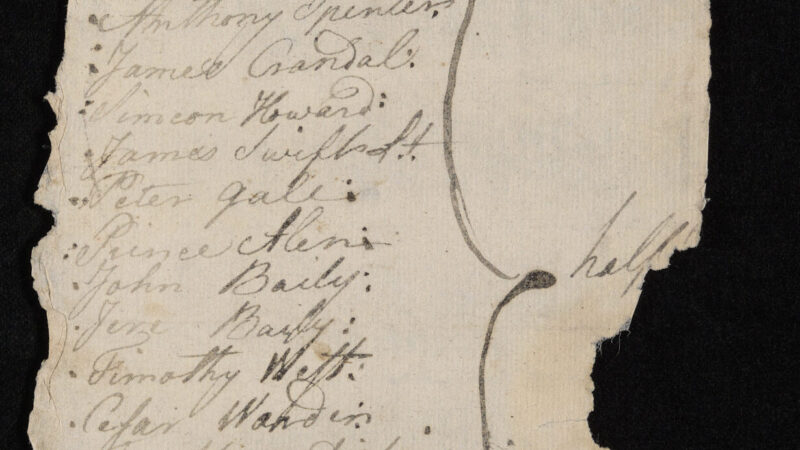 Anthony Spencer:
James Crandal:
Simeon Howard:
James Swift Lt.
Peter gale:
Prince Alen:
John Baily:
half
Jere Baily:
Timothy West:
Cesar Wanden